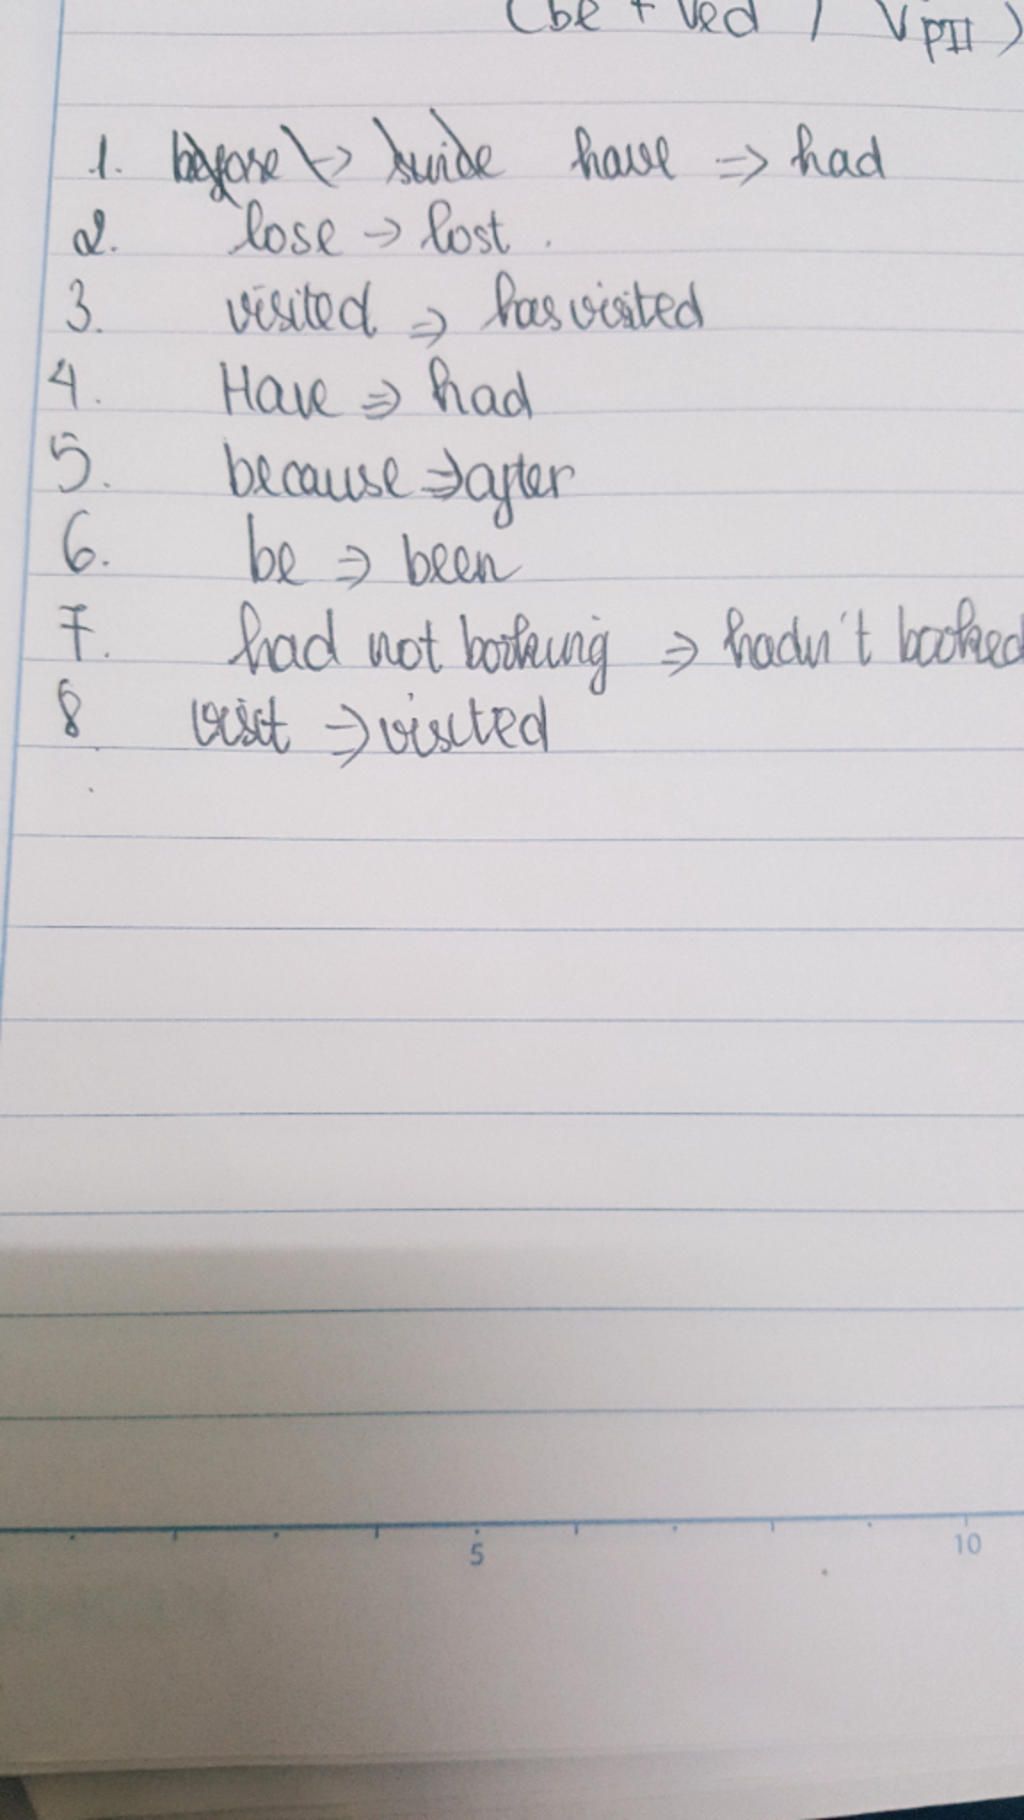 (be + Ved / VpII)
1. have => had
2. lose -> lost.
3. visited => has visited
4. Have => had
5. because => after
6. be => been
7. had not booking => hadn't booked
8 visit => visited
5 10